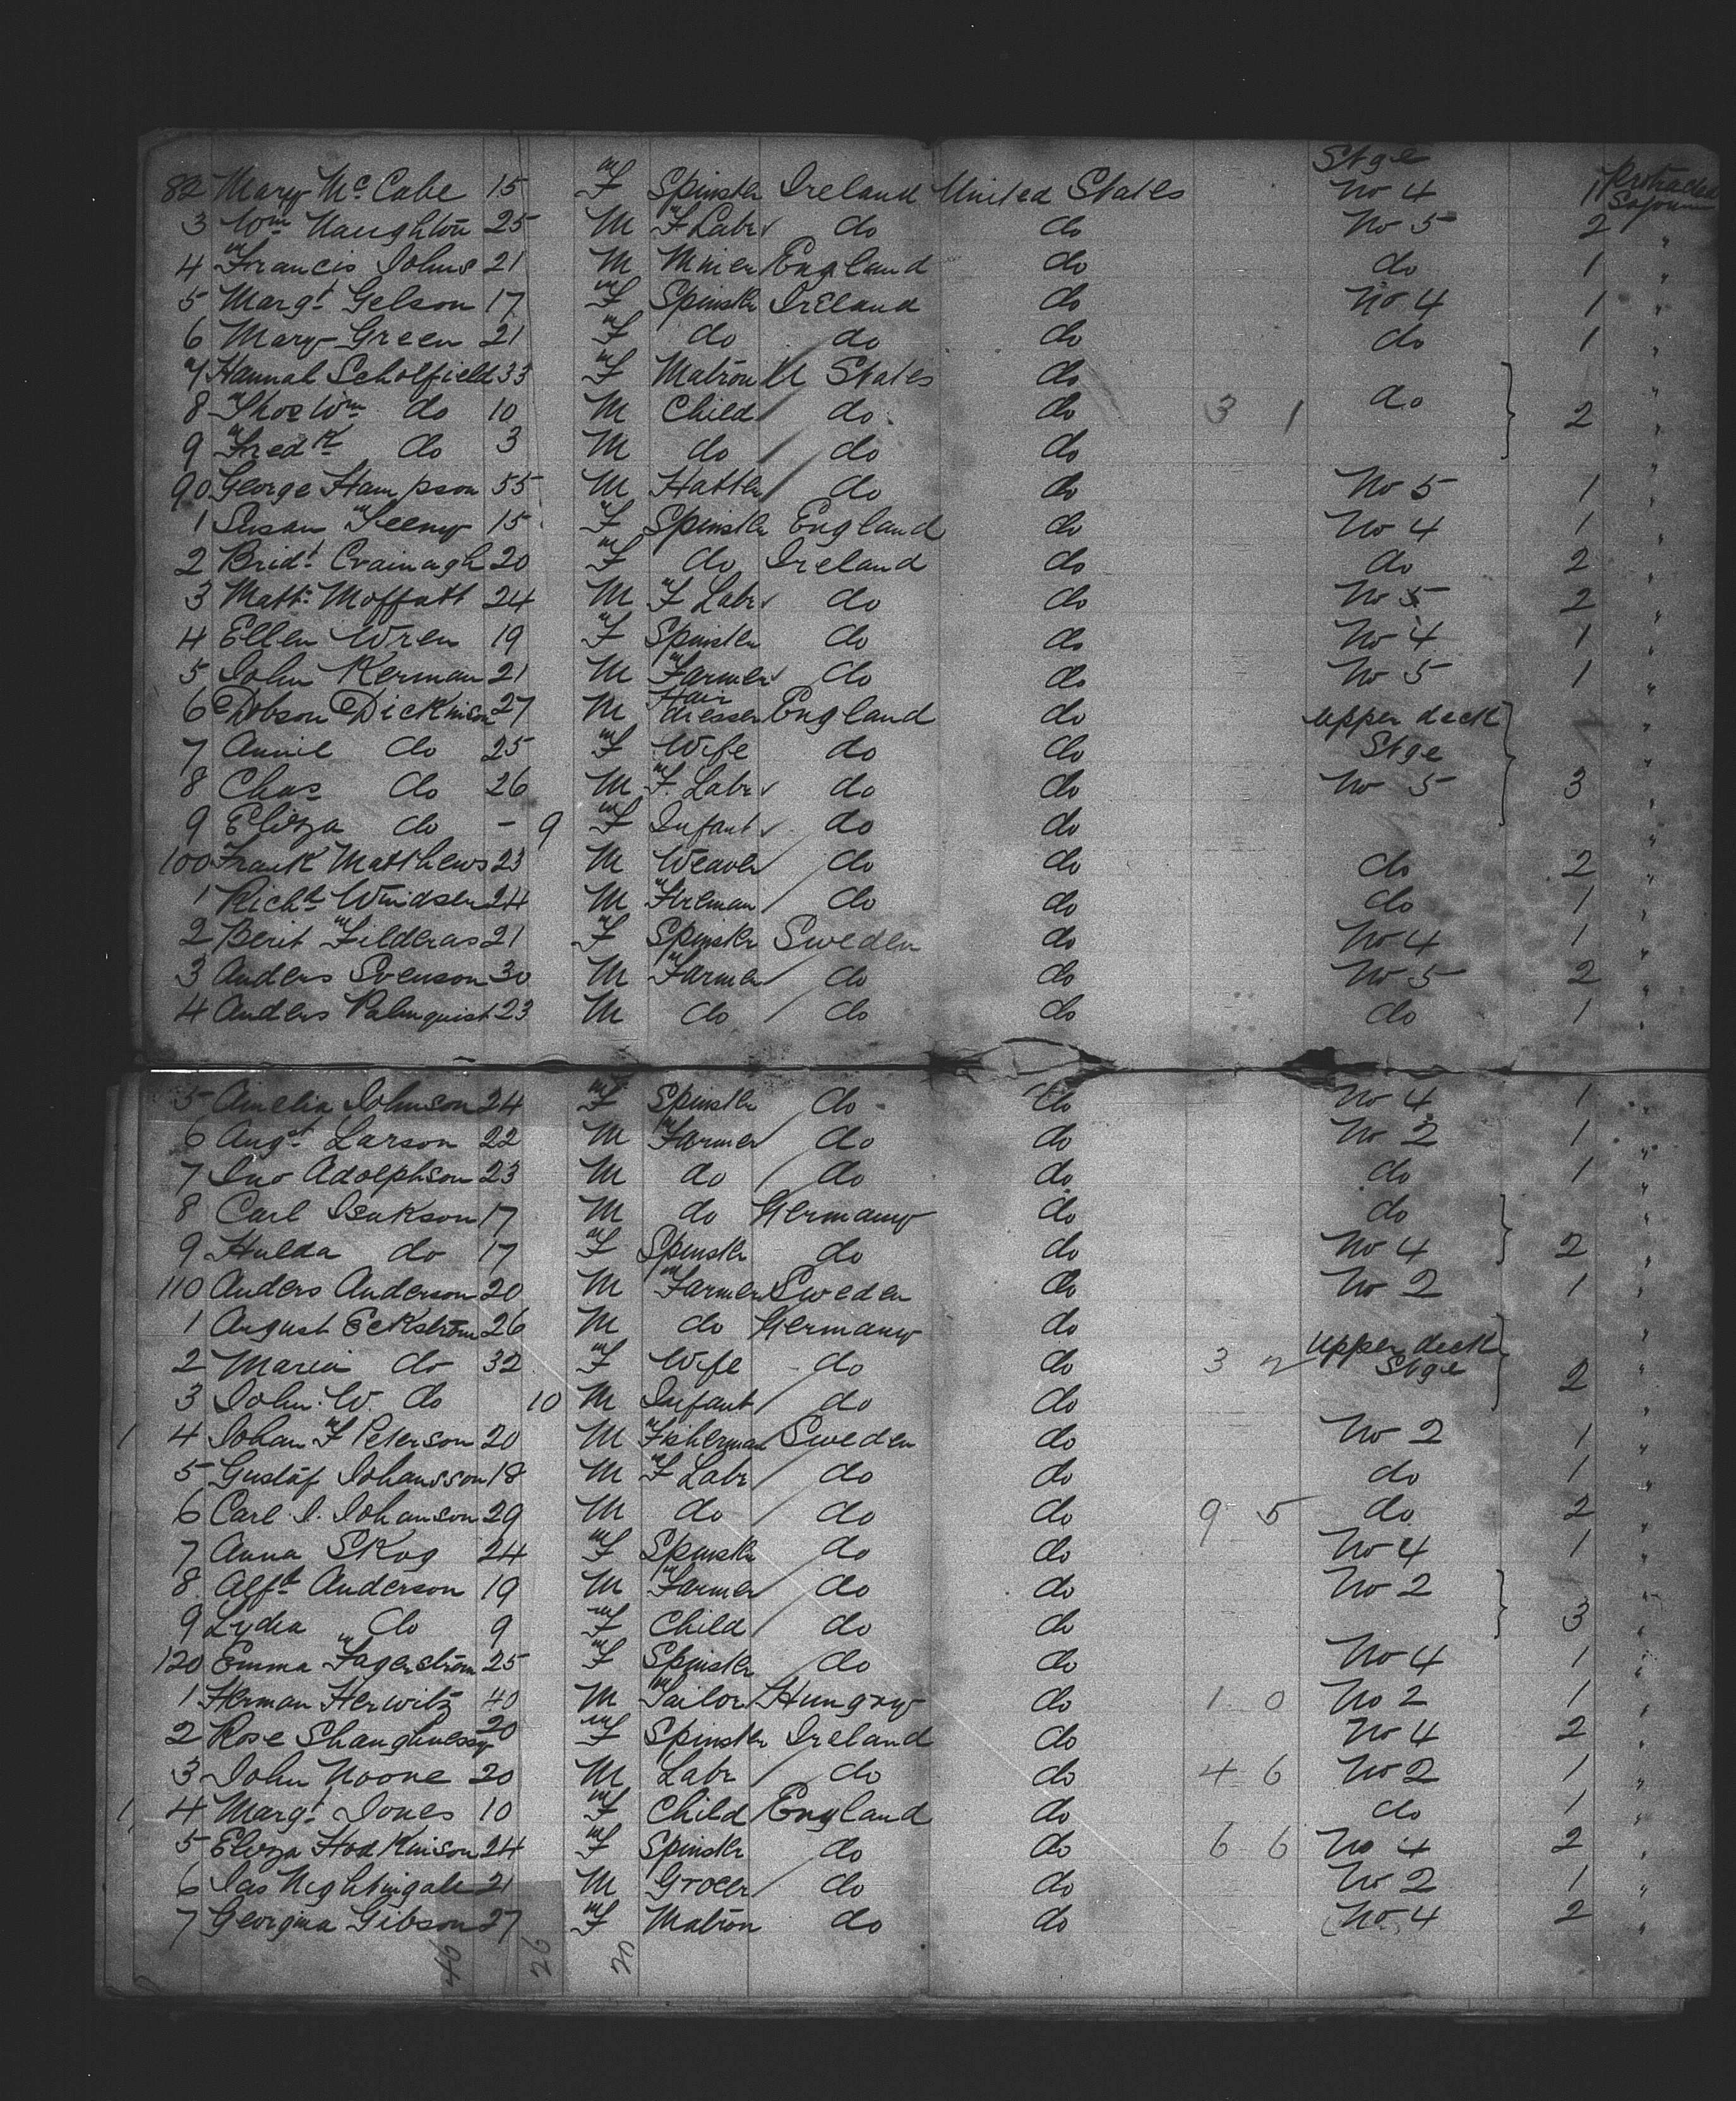 Stge
82 Mary McCabe 15 F Spinster Ireland United States No 4 1 Protracted Sojourn
3 Wm Naughton 25 M F Labr do do No 5 2 "
4 Francis Johns 21 M Miner England do do 1 "
5 Margt Gelson 17 F Spinstr Ireland do No 4 1 "
6 Mary Green 21 F do do do do 1 "
7 Hannah Scholfield 33 F Matron U States do "
8 Thos Wm do 10 M Child do do 3 1 do 2 "
9 Fredk do 3 M do do do "
90 George Hampson 55 M Hatter do do No 5 1 "
1 Susan Feeny 15 F Spinstr England do No 4 1 "
2 Bridt Crainagh 20 F do Ireland do do 2 "
3 Matt: Moffatt 24 M F Labr do do No 5 2 "
4 Ellen Wren 19 F Spinster do do No 4 1 "
5 John Kerman 21 M Farmer do do No 5 1 "
6 Dobson Dickinson 27 M Hair dresser England do Upper deck "
7 Annie do 25 F Wife do do Stge "
8 Chas do 26 M F. Labr do do No 5 3 "
9 Eliza do - 9 F Infant do do "
100 Frank Matthews 23 M Weaver do do do 2 "
1 Richd Windser 24 M Fireman do do do 1 "
2 Berit Filderas 21 F Spinstr Sweden do No 4 1 "
3 Anders Svenson 30 M Farmer do do No 5 2 "
4 Anders Palmquist 23 M do do do do 1 "
5 Amelia Johnson 24 F Spinster do do No 4 1 "
6 Augst Larson 22 M Farmer do do No 2 1 "
7 Jno Adolphson 23 M do do do do 1 "
8 Carl Isakson 17 M do Germany do do "
9 Hulda do 17 F Spinstr do do No 4 2 "
110 Anders Anderson 20 M Farmer Sweden do No 2 1 "
1 August Eckström 26 M do Germany do Upper deck "
2 Maria do 32 F Wife do do 3 2 Stge 2 "
3 John. W. do 10 M Infant do do "
1 4 Johan F Peterson 20 M Fisherman Sweden do No 2 1 "
5 Gustaf Johansson 18 M F Labr do do do 1 "
6 Carl I. Johanson 29 M do do do 9 5 do 2 "
7 Anna Skog 24 F Spinstr do do No 4 1 "
8 Alfd Anderson 19 M Farmer do do No 2 "
9 Lydia do 9 F Child do do 3 "
120 Emma Fagerström 25 F Spinstr do do No 4 1 "
1 Herman Herwitz 40 M Tailor Hungry do 1 0 No 2 1 "
2 Rose Shaughnessy 20 F Spinster Ireland do No 4 2 "
3 John Noone 20 M Labr do do 4 6 No 2 1 "
1 4 Margt Jones 10 F Child England do do 1 "
5 Eliza Hodkinson 24 F Spinstr do do 6 6 No 4 2 "
6 Jas Nightingale 21 M Grocer do do No 2 1 "
7 Georgina Gibson 27 F Matron do do No. 4 2 "
46 26 20